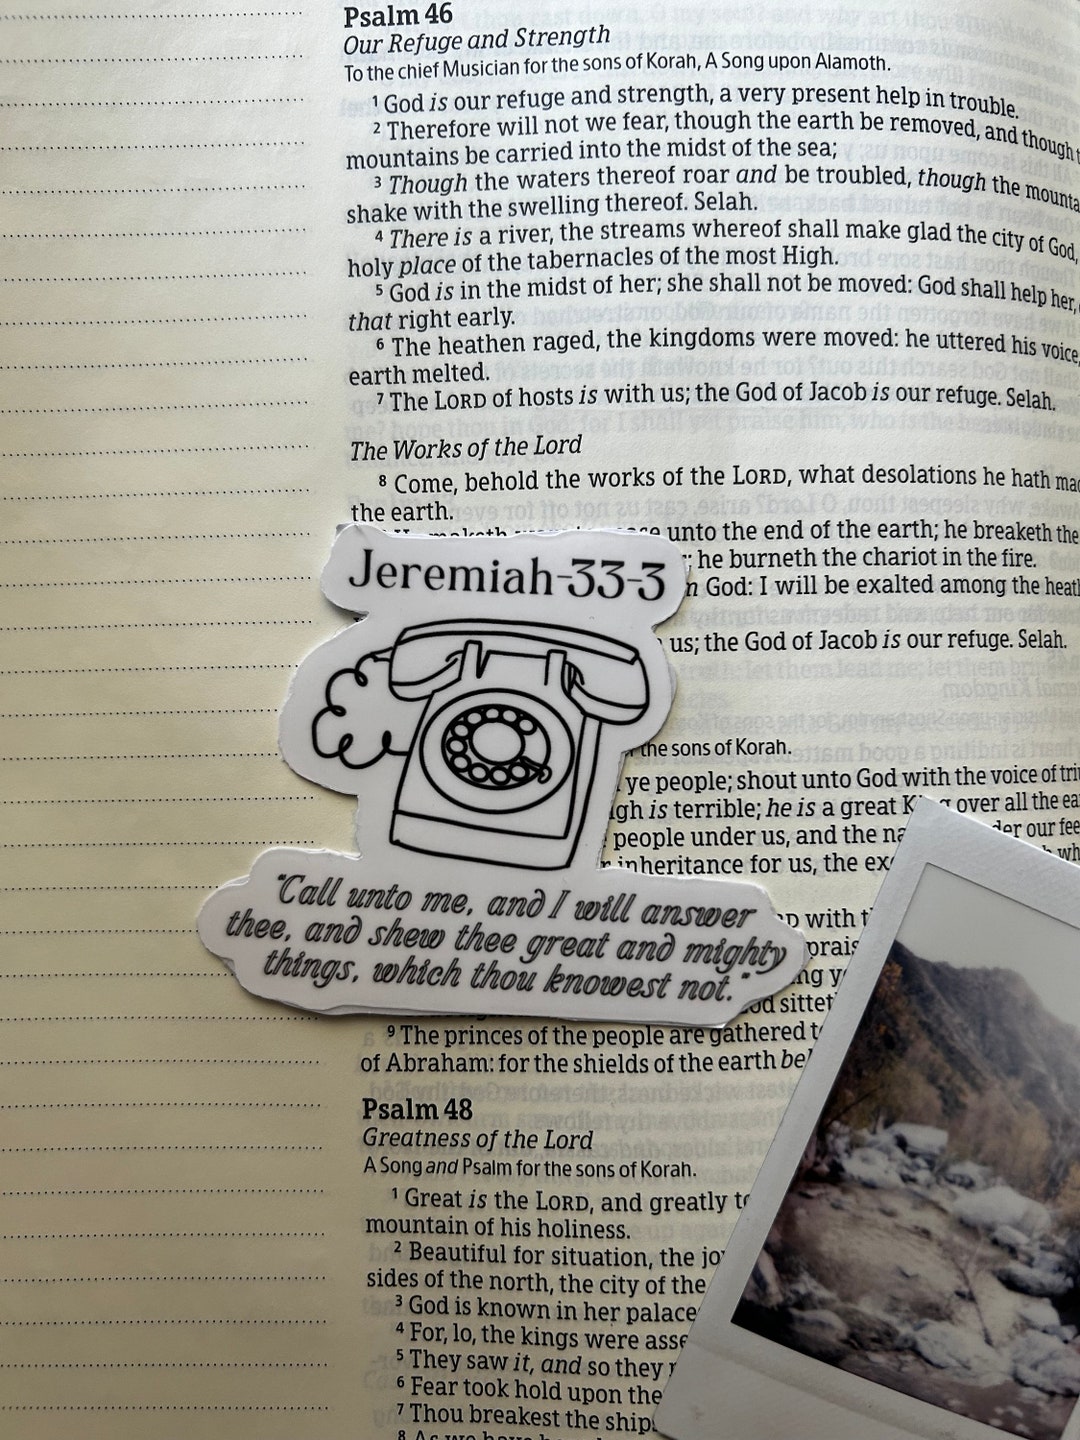 Psalm 46
Our Refuge and Strength
To the chief Musician for the sons of Korah, A Song upon Alamoth.
1 God is our refuge and strength, a very present help in trouble.
2 Therefore will not we fear, though the earth be removed, and though
mountains be carried into the midst of the sea;
3 Though the waters thereof roar and be troubled, though the
shake with the swelling thereof. Selah.
4 There is a river, the streams whereof shall make glad the city of God,
holy place of the tabernacles of the most High.
5 God is in the midst of her; she shall not be moved: God shall help her,
that right early.
6 The heathen raged, the kingdoms were moved: he uttered his voice,
earth melted.
7 The LORD of hosts is with us; the God of Jacob is our refuge. Selah.
The Works of the Lord
8 Come, behold the works of the LORD, what desolations he hath
the earth.
unto the end of the earth; he breaketh the
; he burneth the chariot in the fire.
God: I will be exalted among the
us; the God of Jacob is our refuge. Selah.
Jeremiah-33-3
the sons of Korah.
ye people; shout unto God with the voice of
is terrible; he is a great King over all the
people under us, and the
inheritance for us, the
with
"Call unto me, and I will answer
thee, and shew thee great and mighty
things, which thou knowest not."
9 The princes of the people are gathered
of Abraham: for the shields of the earth
Psalm 48
Greatness of the Lord
A Song and Psalm for the sons of Korah.
1 Great is the LORD, and greatly
mountain of his holiness.
2 Beautiful for situation, the
sides of the north, the city of the
3 God is known in her
4 For, lo, the kings were
5 They saw it, and so they
6 Fear took hold upon
7 Thou breakest the
8 As we have